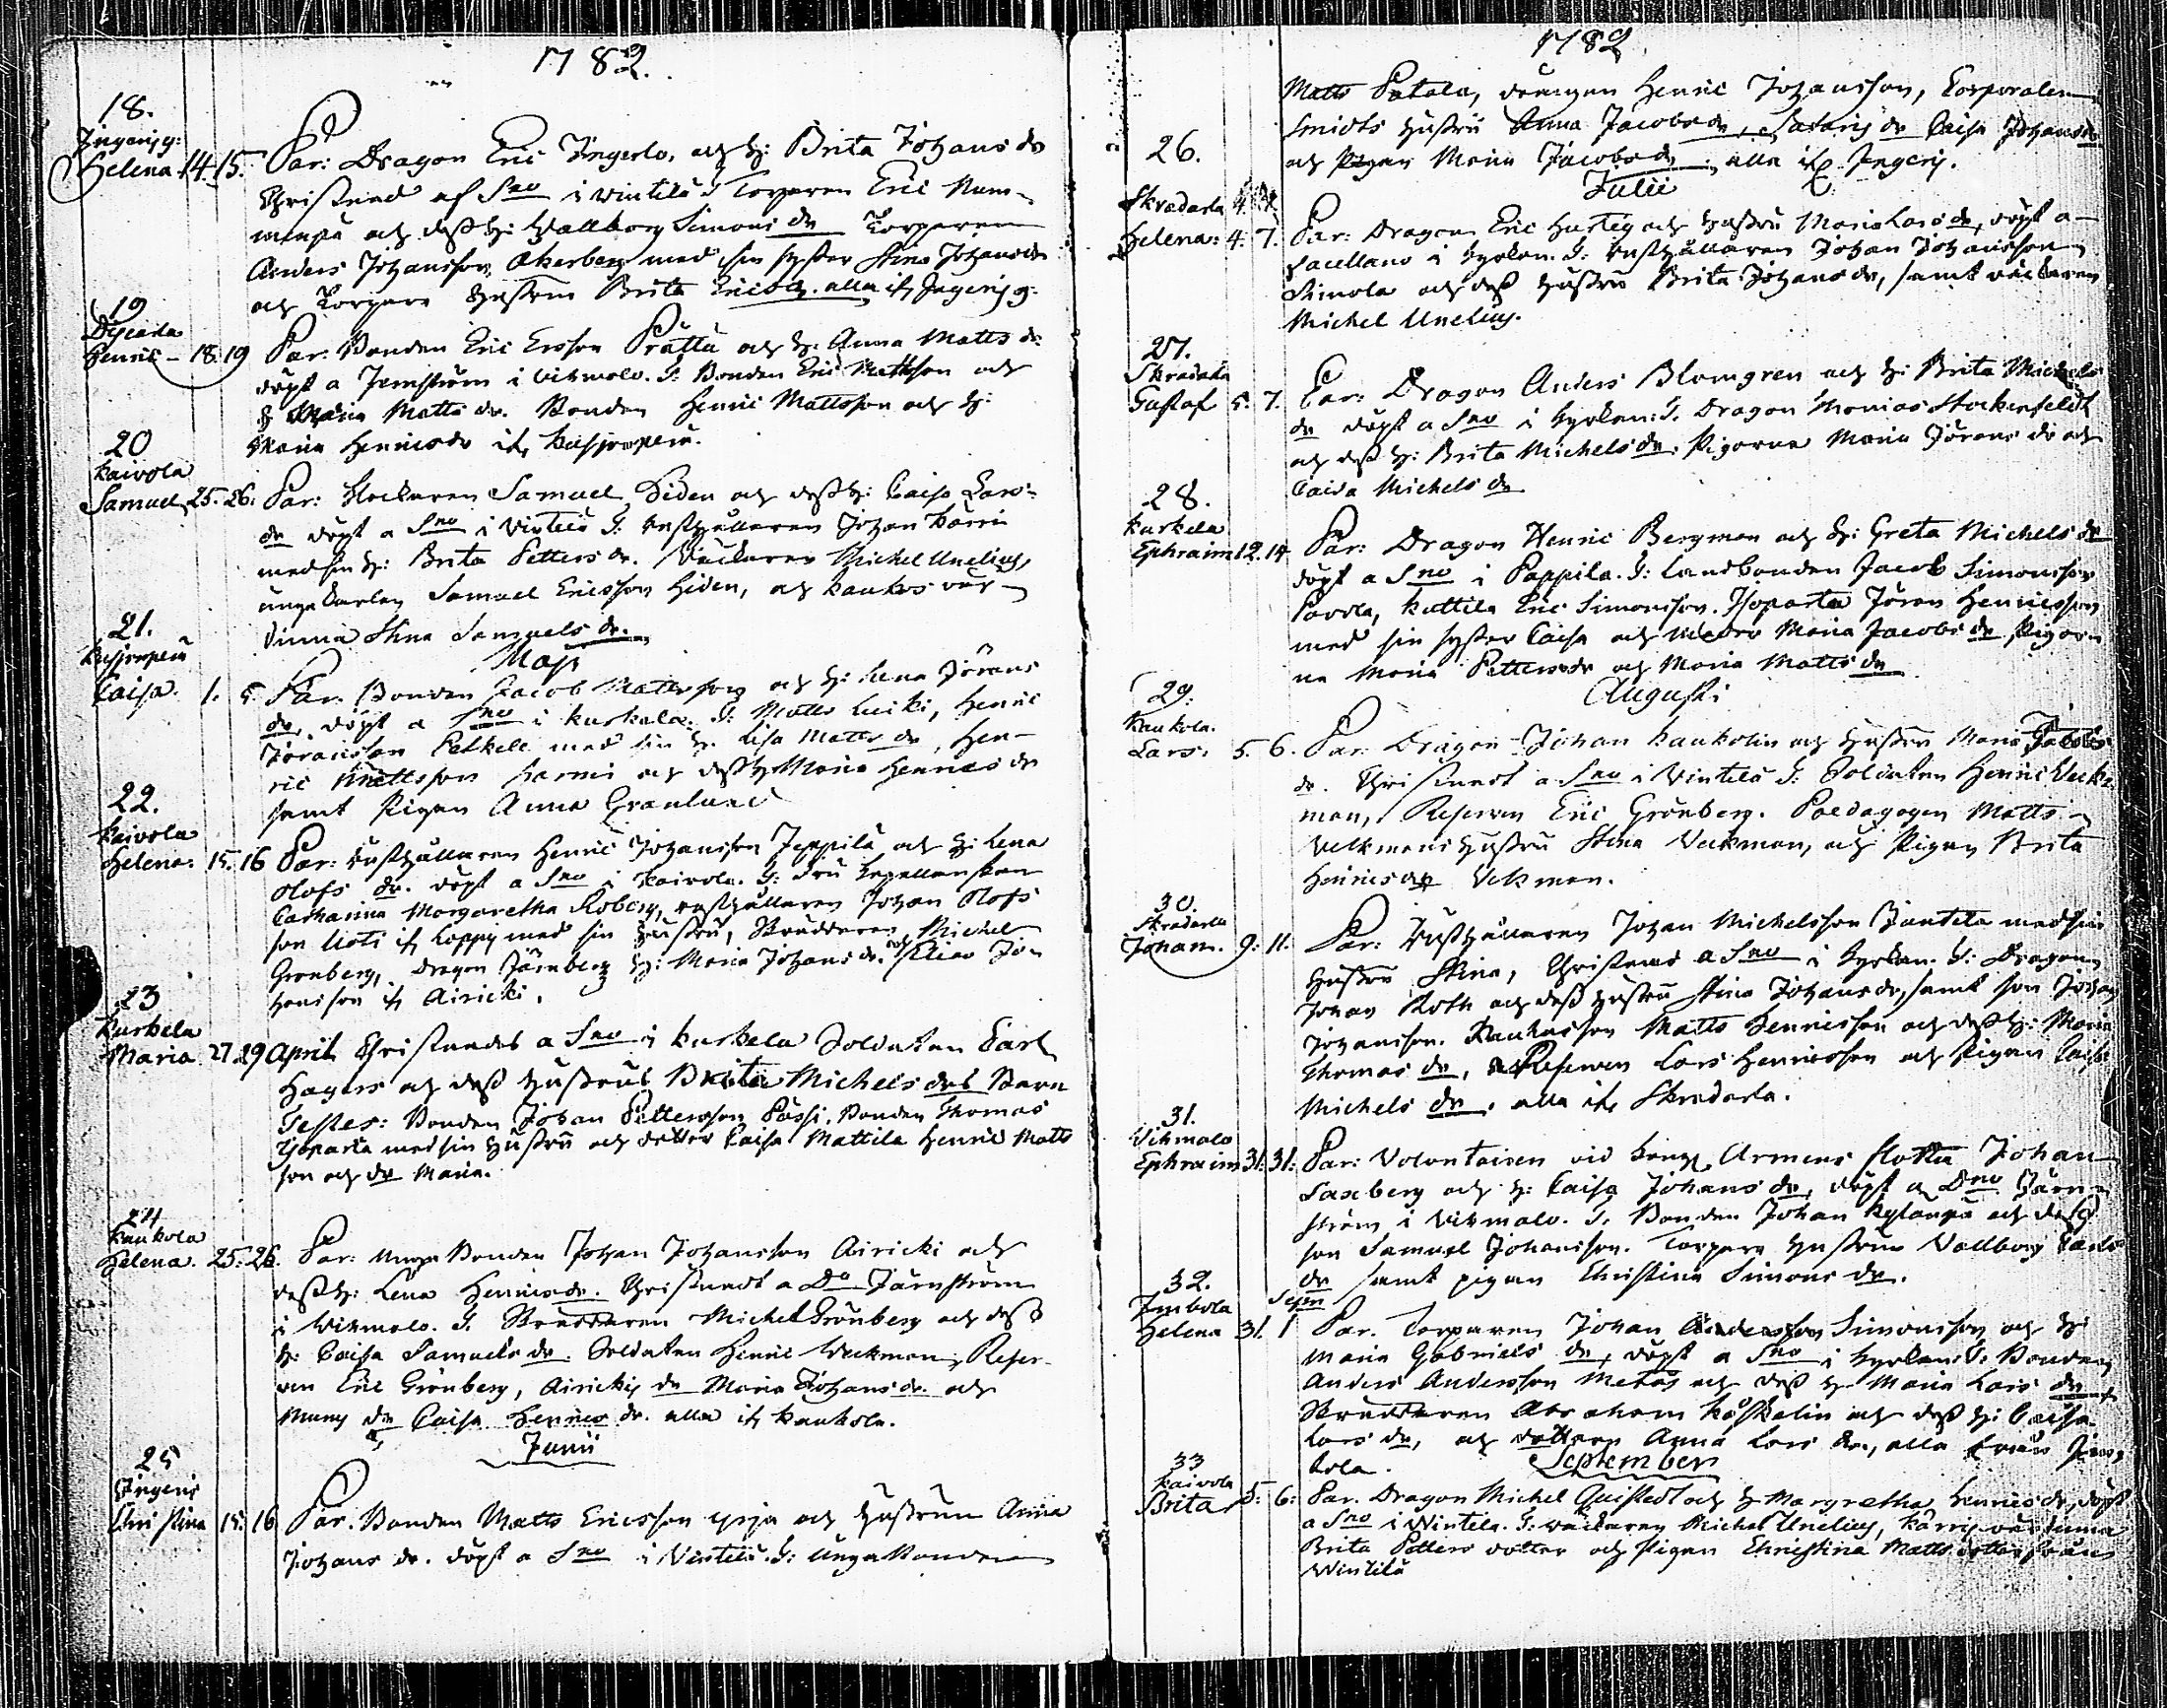 1782.
18.
Ingerig:
Helena 14. 15. Par: Dragon Eric Ingerlo, och h: Brita Johans dr
Christnad af Sno i Vintelä T Torparen Eric Num-
och dess h: Wallborg Simons dr Torparen
Anders Johansson Åkerberg med sin syster Stina Johans dr
och Torpare hustrun Brita Erics dr. alla ifr Ingerig.
19
Henric - 18. 19 Par. Bonden Eric Ersson Prättä och h. Anna Matts dr
döpt a Jernström i Vikmalo. T: Bonden Eric Mattsson och
h Maria Matts dr. Bonden Henric Mattsson och h:
Maria Henrics dr ifr
20
Kaivola
Samuel 25. 26. Par: Klockaren Samuel Hiden och dess h: Caisa Lars
dr döpt a Sno i Vintelä T: rusthållaren Johan Kärri
med sin h: Brita Petters dr. Väckaren Michel Unelius,
unga karlen Samuel Ericsson Hiden, och Kaukos vär-
dinna Stina Samuels dr.
Maji
21.
Caisa. 1. 5. Par. Bonden Jacob Mattsson och h: Lena Jörans
dr, döpt a Sno i Kurkela. T: Matts Luicki, Henric
Jöransson Pelkele med sin h. Lisa Matts dr, Hen-
ric Mattsson Harmi och dess h Maria Henrics dr
samt Pigan Anna Granlund
22.
Kaivola
Helena. 15. 16 Par: rusthållaren Henric Johansson Jeppilä och h: Lena
Olofs dr. döpt a Sno i Kaivola. T: Fru Kapellanskan
Catharina Margaretha Roberg, rusthållaren Johan Olofs
son Uoti ifr Koppi med sin hustru, Skräddaren Michel
Grönberg, Dragon Järnberg h: Maria Johans dr. och Elias Jo-
hansson ifr Airicki.
23
Kurkela
Maria 27. 29 April Christnades a Sno i Kurkela Soldaten Carl
Hagers och dess hustrus Brita Michels drs Barn
Testes: Bonden Johan Pettersson Pässi, Bonden Thomas
Isoparta med sin hustru och dotter Caisa Mattila Henric Matts
son och dr Maria.
24
Kaukola
Helena. 25. 26. Par: unga Bonden Johan Johansson Airicki och
dess h: Lena Henrics dr. Christnadt a Do Järnström
i Vikmalo. T. Skräddaren Michel Grönberg och dess
h: Caisa Samuels dr. Soldaten Henric Weckman, Reser-
ven Eric Grönberg, Airickis dr Maria Johans dr. och
dr Caisa Henrics dr. alla ifr Kaukola.
Junii
25
Ingeris
Christina 15. 16 Par. Bonden Matts Ericsson Yrja och hustrun Anna
Johans dr. döpt a Sno i Vintelä. T: Unga Bonden
1782.
Matts Patala, drängen Henric Johansson, Corporalen
Smidts hustru Anna Jacobs dr, dr Caisa Johans dr
och Pigan Maria Jacobs dr, alla ifr Ingeris.
Julii
26.
Skradarla
Helena: 4. 7. Par: Dragon Eric Hurtig och hustru Maria Lars dr, döpt a
Sacellano i Kyrkan. T: rusthållaren Johan Johansson
Simola och dess hustru Brita Johans dr, samt väckaren
Michel Unelius.
27.
Skradarla
Gustaf 5. 7. Par: Dragon Anders Blomgren och h: Brita Michels
dr döpt a Sno i Kyrkan: T. Dragon Monias Stockenfeldt
och dess h: Brita Michels dr. Pigorna Maria Jörans dr och
Caisa Michels dr
28.
Kurkela
Ephraim 12. 14 Par: Dragon Henric Bergman och h: Greta Michels dr
döpt a Sno i Pappila. T: Landbonden Jacob Simonsson
Pavola, Kuttila Eric Simonsson. Isoparta Jöran Henricsson
med sin syster Caisa och Maria Jacobs dr Pigor-
na Maria Petters dr och Maria Matts dr
Augusti
29.
Kaukola.
Lars. 5. 6. Par: Dragon Johan Kaukolin och hustru Maria Jacobs
dr. Christnadt a Sno i Vintelä T: Soldaten Henric Weck-
man, Reserven Eric Grönberg. Paedagogen Matts
Weckmans hustru Stina Weckman, och Pigan Brita
Henrics dr Veckman.
30.
Skradarla
Johan. 9. 11. Par: Rusthållaren Johan Michelsson Jantela med sin
hustru Stina, Christnad a Sno i Kyrkan. T: Dragon
Johan Roth och dess hustru Stina Johans dr, samt son Johan
Johansson. Matts Henricsson och dess h: Maria
Thomas dr, Reserven Lars Henricsson och Pigan Caisa
Michels dr. alla ifr Skradarla.
31.
Vikmalo
Ephraim 31. 31: Par: Volontairen vid Kongl. Armens flotta Johan
Saxberg och h: Caisa Johans dr, döpt a Dno Järn-
ström i Vikmalo. T. Bonden Johan Kylänpä och dess
son Samuel Johansson. Torpare hustrun Vallborg Carls
dr samt pigan Christina Simons dr.
32.
Sepr
Helena 31. 1 Par. Torparen Johan Andersson Simonsson och h:
Maria Gabriels dr, döpt a Sno i Kyrkan: T: Bonden
Anders Andersson Metäs och dess h. Maria Lars dr
Skräddaren Abraham Kåskelin och dess h: Caisa
Lars dr, och dottern Anna Lars dr, alla från Jim-
kola.
September
33
Kaivola
Brita 5. 6: Par. Dragon Michel Quistedt och h Margretha Henrics dr, döpt
a Sno i Wintela. T: väckaren Michel Unelius, Kärris värdinna
Brita Petters dotter och Pigan Christina Matts dotter från
Wintilä